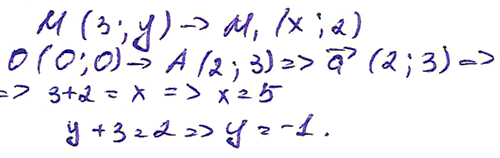 M (3; y) → M₁ (x; 2)
O (0; 0) → A (2; 3) => a⃗ (2; 3) =>
=> 3+2 = x => x = 5
y + 3 = 2 => y = -1.